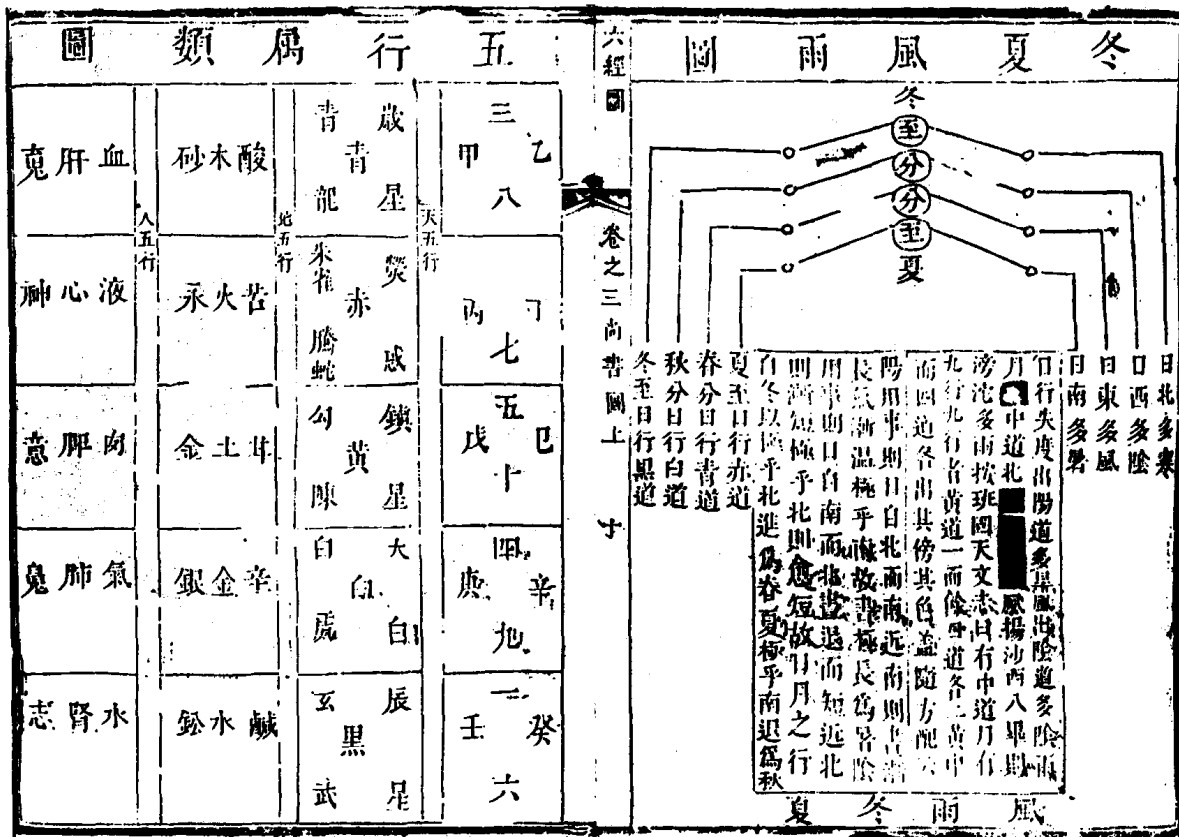 冬夏風雨圖
冬
至
分
分
至
夏
日北多寒
日西多陰
日東多風
日南多暑
日行失度出陽道多旱風出陰道多陰雨
月 中道北 風揚沙西入畢則
滂沱多雨按班固天文志日有中道月有
九行九行者黃道一而餘四道各二黃中
而四道各出其傍其色蓋隨方配
陽用事則日自北而南近南則晝
長氣漸溫極乎南故晝極長為暑陰
用事則日自南而北晝退而短近北
則漸短極乎北則愈短故日月之行
自冬以極乎北進為春夏極乎南退為秋
夏至日行赤道
春分日行青道
秋分日行白道
冬至日行黑道
風雨冬夏
六經圖
卷之三尚書圖上
五行屬類圖
三
乙
甲
八
丁
丙
七
五
巳
戊
十
四
辛
庚
九
一
癸
壬
六
天五行
歲星
青
青龍
熒惑
赤
朱雀
騰蛇
鎮星
黃
勾陳
太白
白
白虎
辰星
黑
玄武
地五行
酸木砂
苦火汞
甘土金
辛金銀
鹹水鉛
人五行
血肝魂
液心神
肉脾意
氣肺魄
水腎志